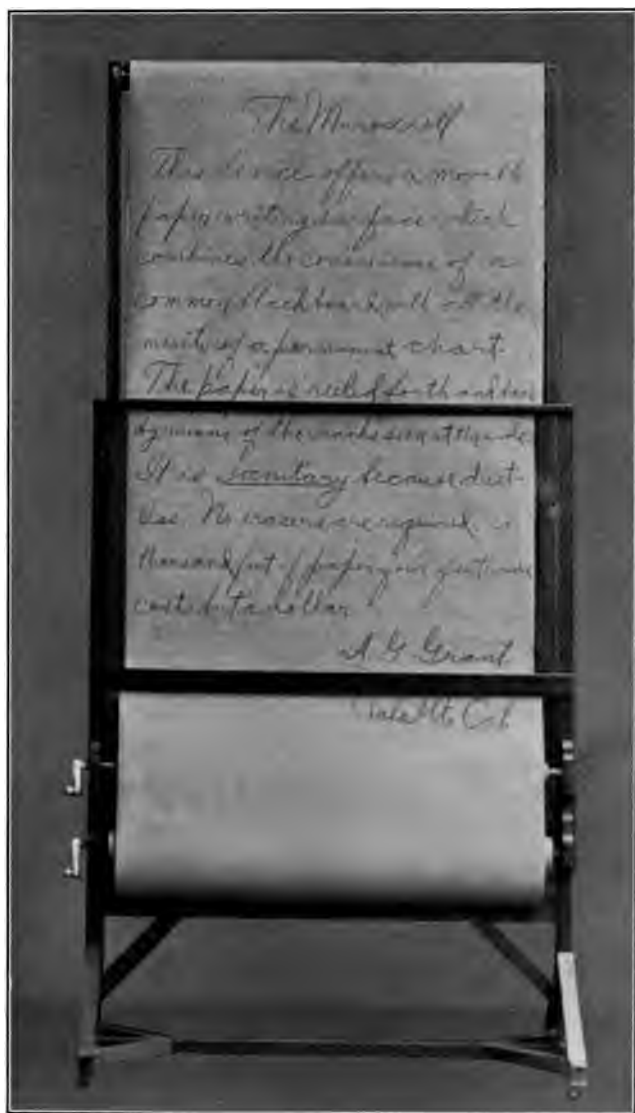 The Muroscroll
This device offers a movable
paper writing surface which
combines the convenience of a
common blackboard with all the
merits of a permanent chart.
The paper is reeled forth and back
by means of the cranks seen at the side.
It is sanitary because dust-
less. No erasers are required. A
thousand feet of paper
costs but a dollar
A. G. Grant
Palo Alto Cal.